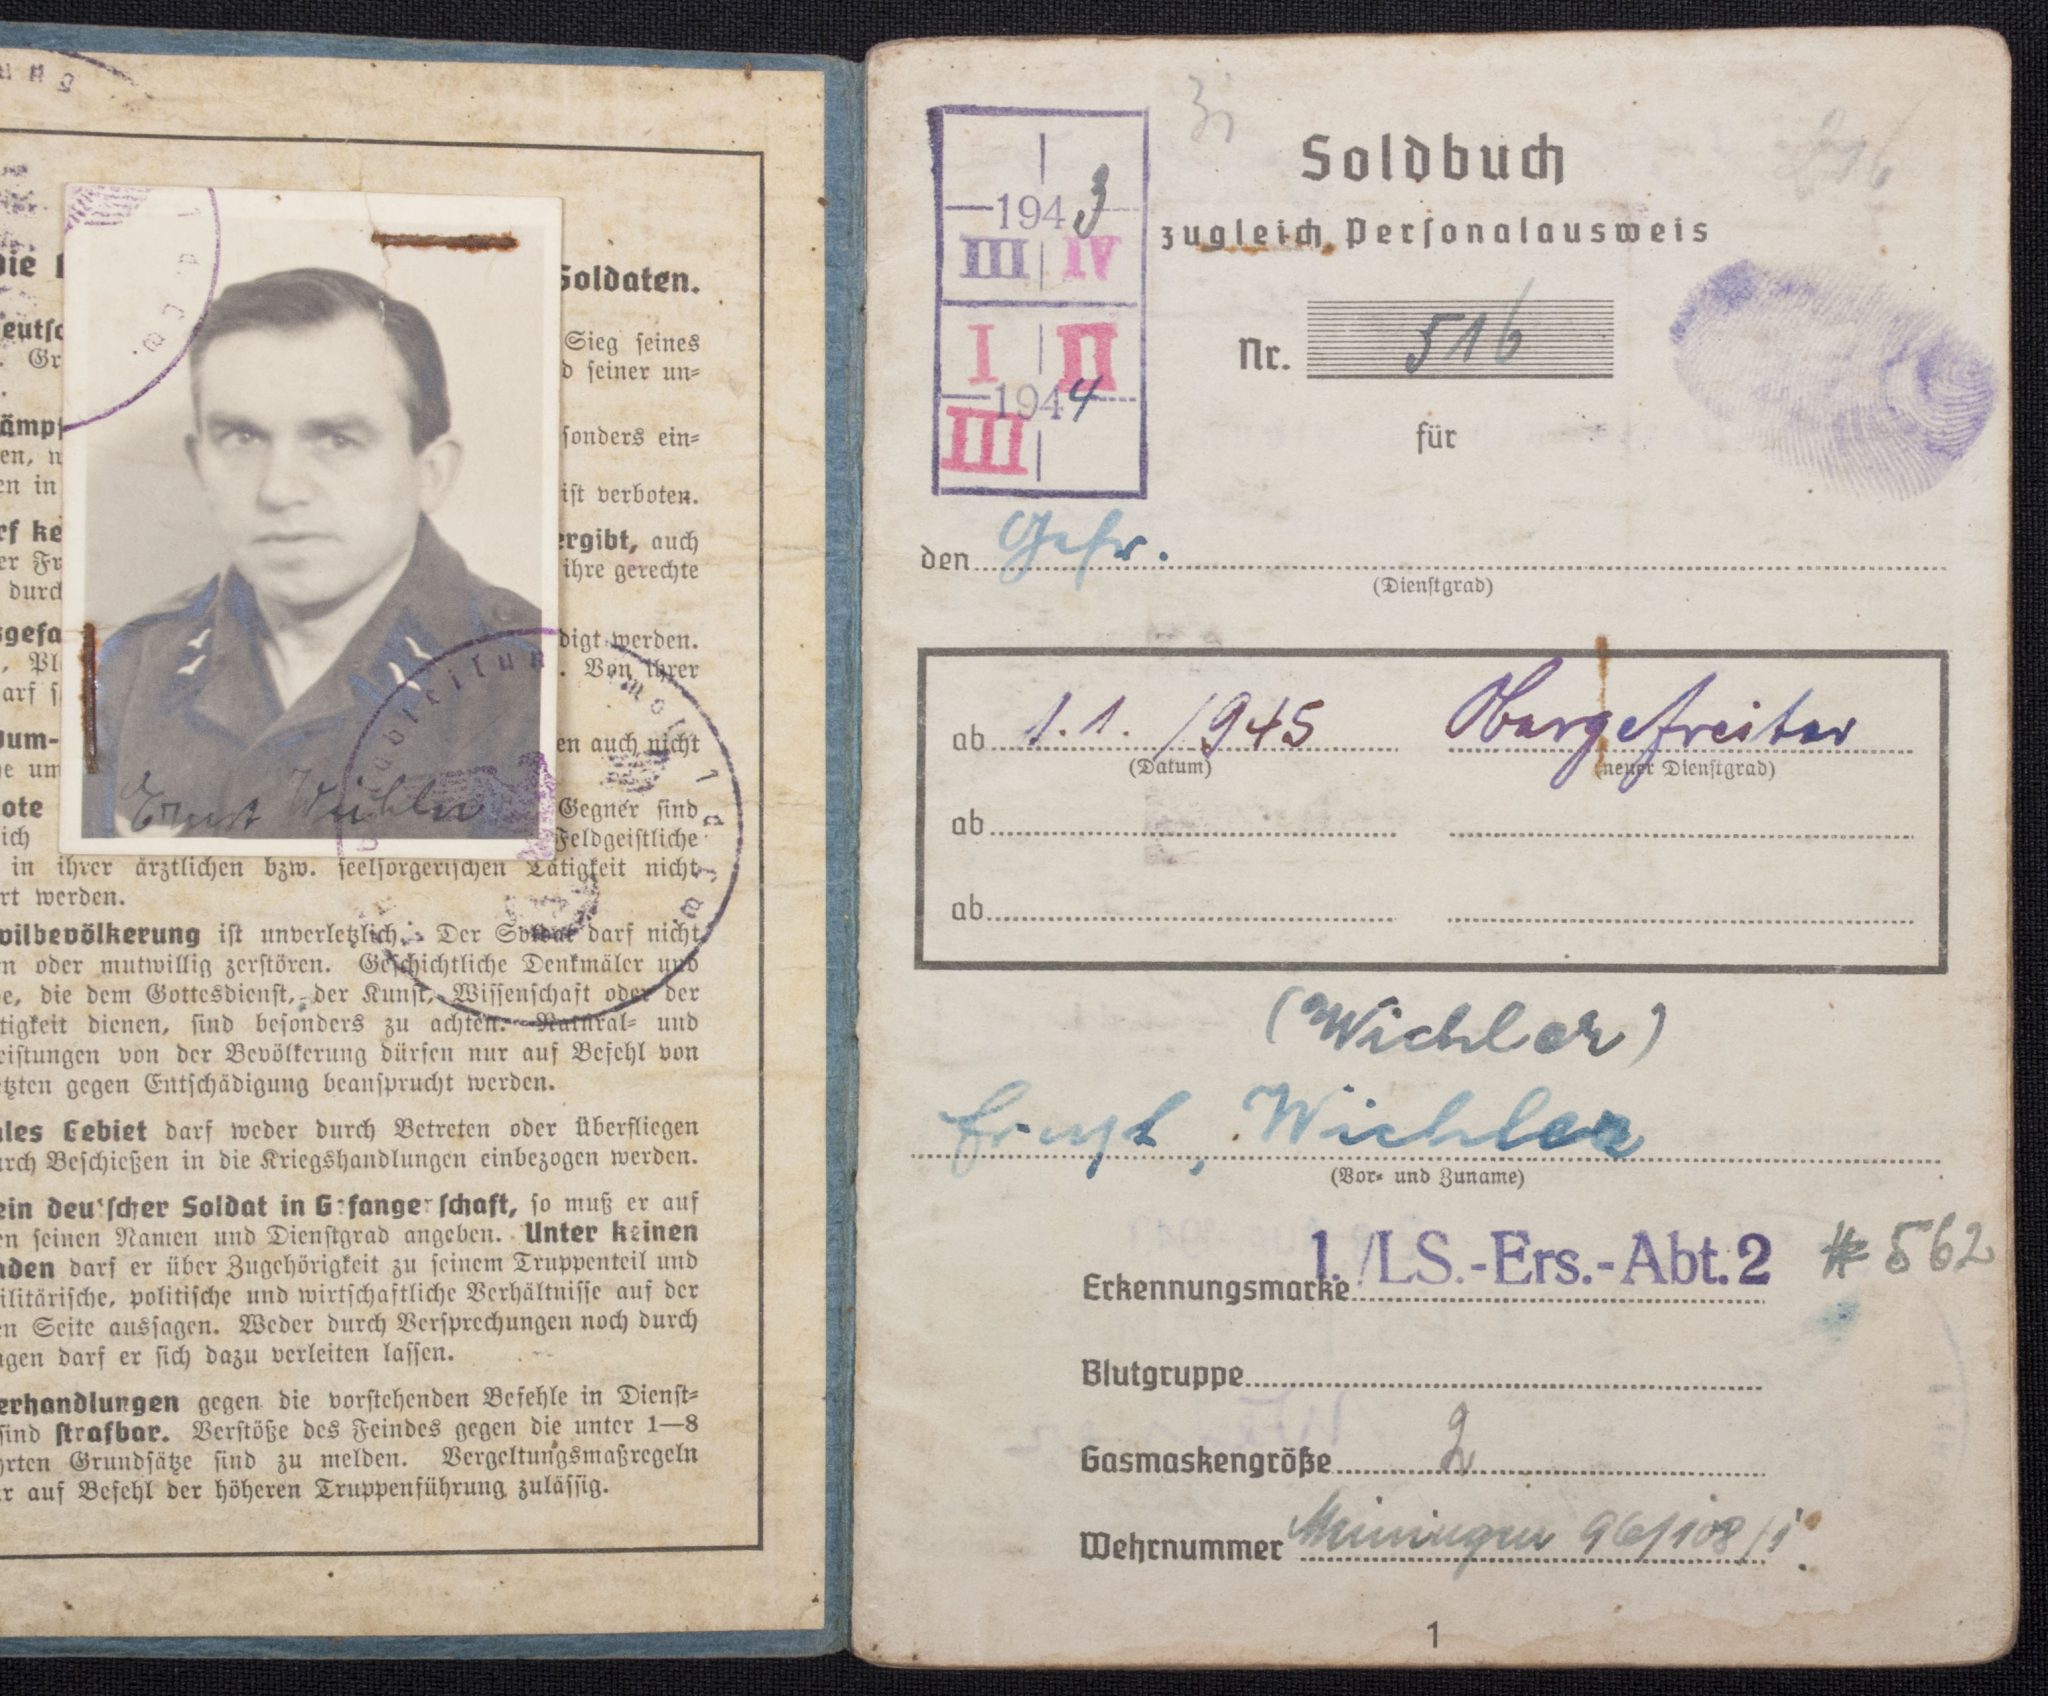 Soldaten.
Sieg seines
seiner un=
sonders ein=
ist verboten.
ergibt, auch
ihre gerechte
durch
digt werden.
Von ihrer
en auch nicht
Gegner sind
Feldgeistliche
in ihrer ärztlichen bzw. seelsorgerischen Tätigkeit nicht
rt werden.
vilbevölkerung ist unverletzlich. Der Soldat darf nicht
n oder mutwillig zerstören. Geschichtliche Denkmäler und
e, die dem Gottesdienst, der Kunst, Wissenschaft oder der
tigkeit dienen, sind besonders zu achten. Natural= und
eistungen von der Bevölkerung dürfen nur auf Befehl von
etzten gegen Entschädigung beansprucht werden.
ales Gebiet darf weder durch Betreten oder überfliegen
urch Beschießen in die Kriegshandlungen einbezogen werden.
ein deutscher Soldat in Gefangenschaft, so muß er auf
en seinen Namen und Dienstgrad angeben. Unter keinen
nden darf er über Zugehörigkeit zu seinem Truppenteil und
ilitärische, politische und wirtschaftliche Verhältnisse auf der
en Seite aussagen. Weder durch Versprechungen noch durch
ngen darf er sich dazu verleiten lassen.
erhandlungen gegen die vorstehenden Befehle in Dienst=
sind strafbar. Verstöße des Feindes gegen die unter 1—8
hrten Grundsätze sind zu melden. Vergeltungsmaßregeln
ur auf Befehl der höheren Truppenführung zulässig.
Ernst Wichler
1943
III IV
I II
1944
III
Soldbuch
zugleich Personalausweis
Nr. 516
für
den Gefr.
(Dienstgrad)
ab 1.1.1945 Obergefreiter
(Datum) (neuer Dienstgrad)
ab
ab
(Wichler)
Ernst, Wichler
(Vor= und Zuname)
Erkennungsmarke 1./LS.-Ers.-Abt. 2 # 562
Blutgruppe
Gasmaskengröße 2
Wehrnummer Meiningen 96/108/1
1